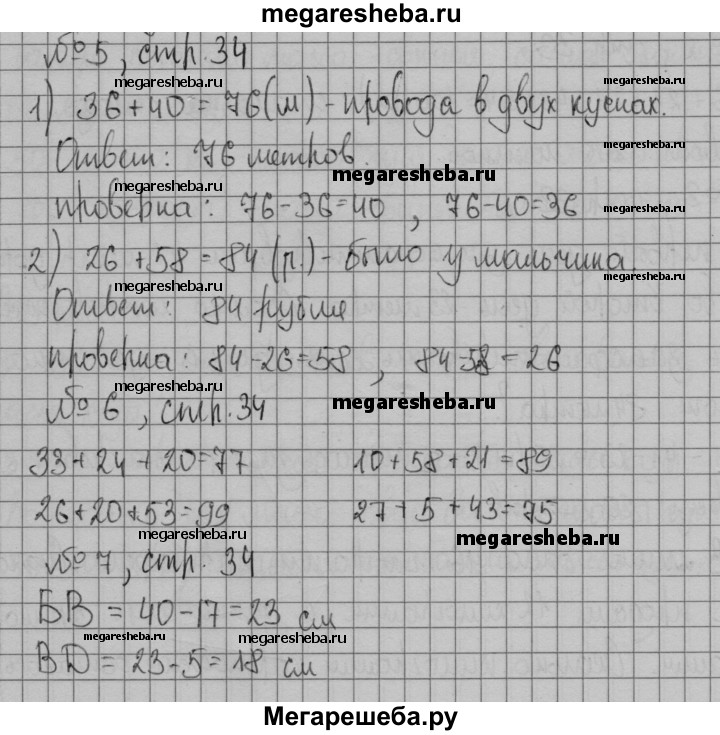 megaresheba.ru
№ 5, стр. 34
megaresheba.ru megaresheba.ru
1) 36+40=76(м) - провода в двух кусках.
megaresheba.ru
Ответ: 76 метров.
megaresheba.ru
megaresheba.ru
проверка: 76-36=40, 76-40=36
megaresheba.ru
2) 26+58=84(р.) - было у мальчика.
megaresheba.ru megaresheba.ru
Ответ: 84 рубля
проверка: 84-26=58, 84-58=26
megaresheba.ru
№ 6, стр. 34 megaresheba.ru
33+24+20=77 10+58+21=89
26+20+53=99 27+5+43=75
megaresheba.ru megaresheba.ru
№ 7, стр. 34
БВ = 40-17=23 см
megaresheba.ru megaresheba.ru
ВD = 23-5=18 см
Мегарешеба.ру